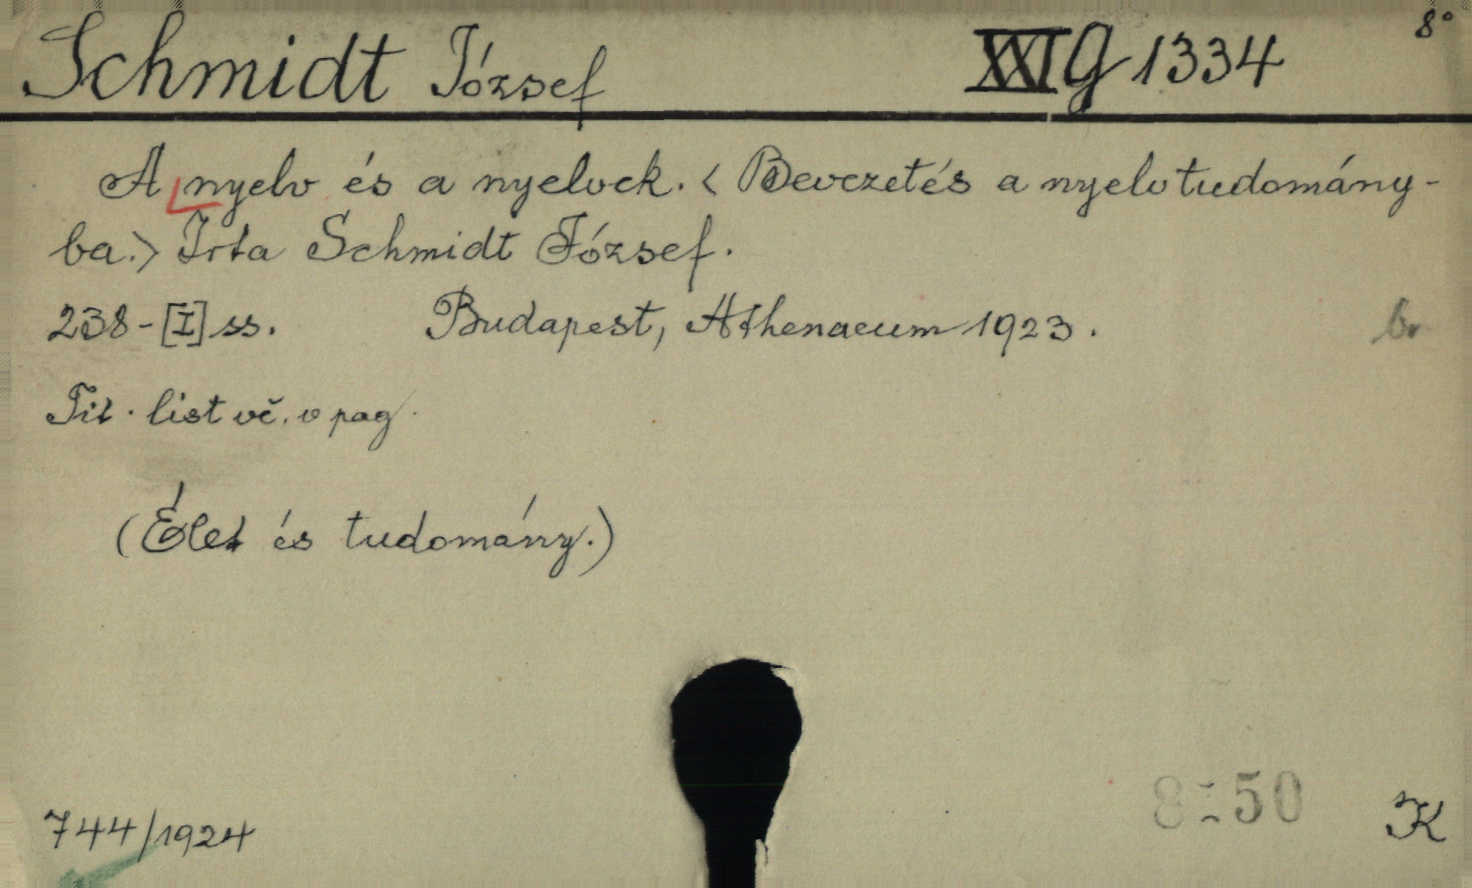 Schmidt József XXI G 1334 8°
A nyelv és a nyelvek. < Bevezetés a nyelvtudomány-
ba.> Irta Schmidt József.
238-[I] ss. Budapest, Athenaeum 1923. br
Tit. list vč. v pag.
(Élet és tudomány.)
744/1924 K